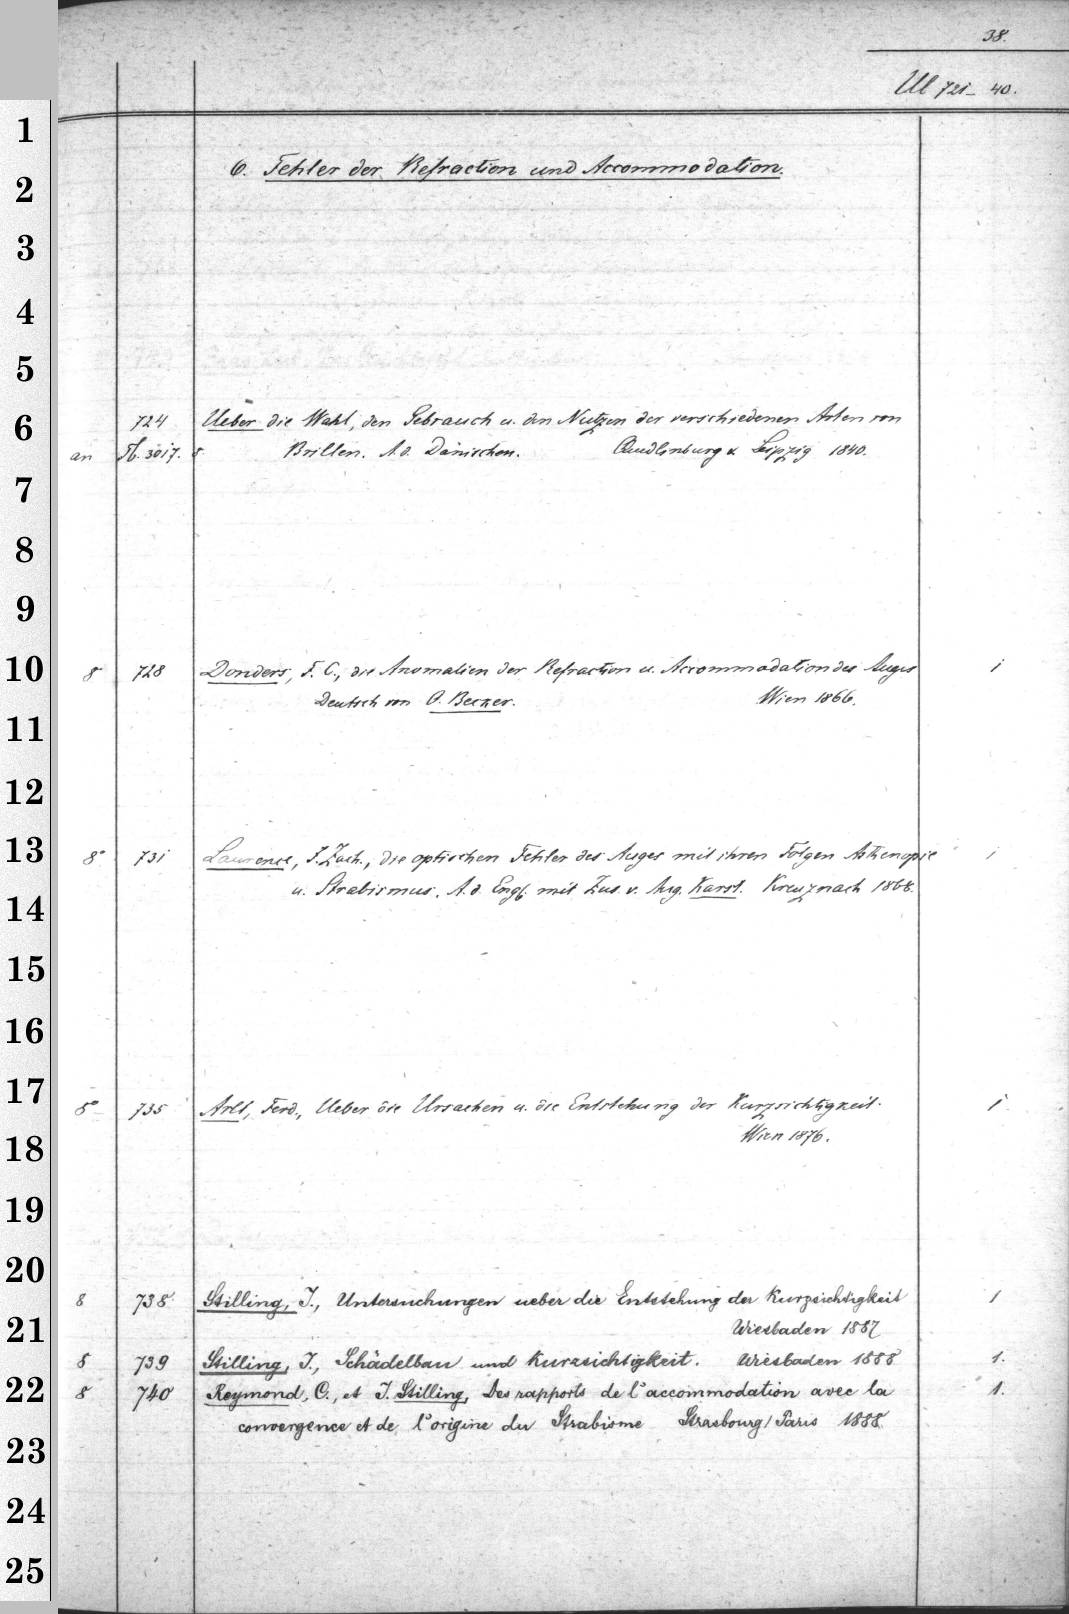 38.
Ul 721-40.
6. Fehler der Refraction und Accommodation.
724 Ueber die Wahl, den Gebrauch u. den Nutzen der verschiedenen Arten von
an 3017. 8 Brillen. A. d. Dänischen. Quedlinburg u. Leipzig 1840.
8 728 Donders, F. C., die Anomalien der Refraction u. Accommodation des Auges 1
Deutsch von O. Becker. Wien 1866.
8° 731 Laurence, J. Zach., die optischen Fehler des Auges mit ihren Folgen Asthenopie 1
u. Strabismus. A. d. Engl. mit Zus. v. Aug. Karst. Kreuznach 1868.
8° 735 Arlt, Ferd., Ueber die Ursachen u. die Entstehung der Kurzsichtigkeit. 1
Wien 1876.
8 738 Stilling, J., Untersuchungen ueber die Entstehung der Kurzsichtigkeit 1
Wiesbaden 1887
8 739 Stilling, J., Schädelbau und Kurzsichtigkeit. Wiesbaden 1888 1.
8 740 Reymond, C., et J. Stilling, Des rapports de l'accommodation avec la 1.
convergence et de l'origine du Strabisme Strasbourg/Paris 1888
1
2
3
4
5
6
7
8
9
10
11
12
13
14
15
16
17
18
19
20
21
22
23
24
25